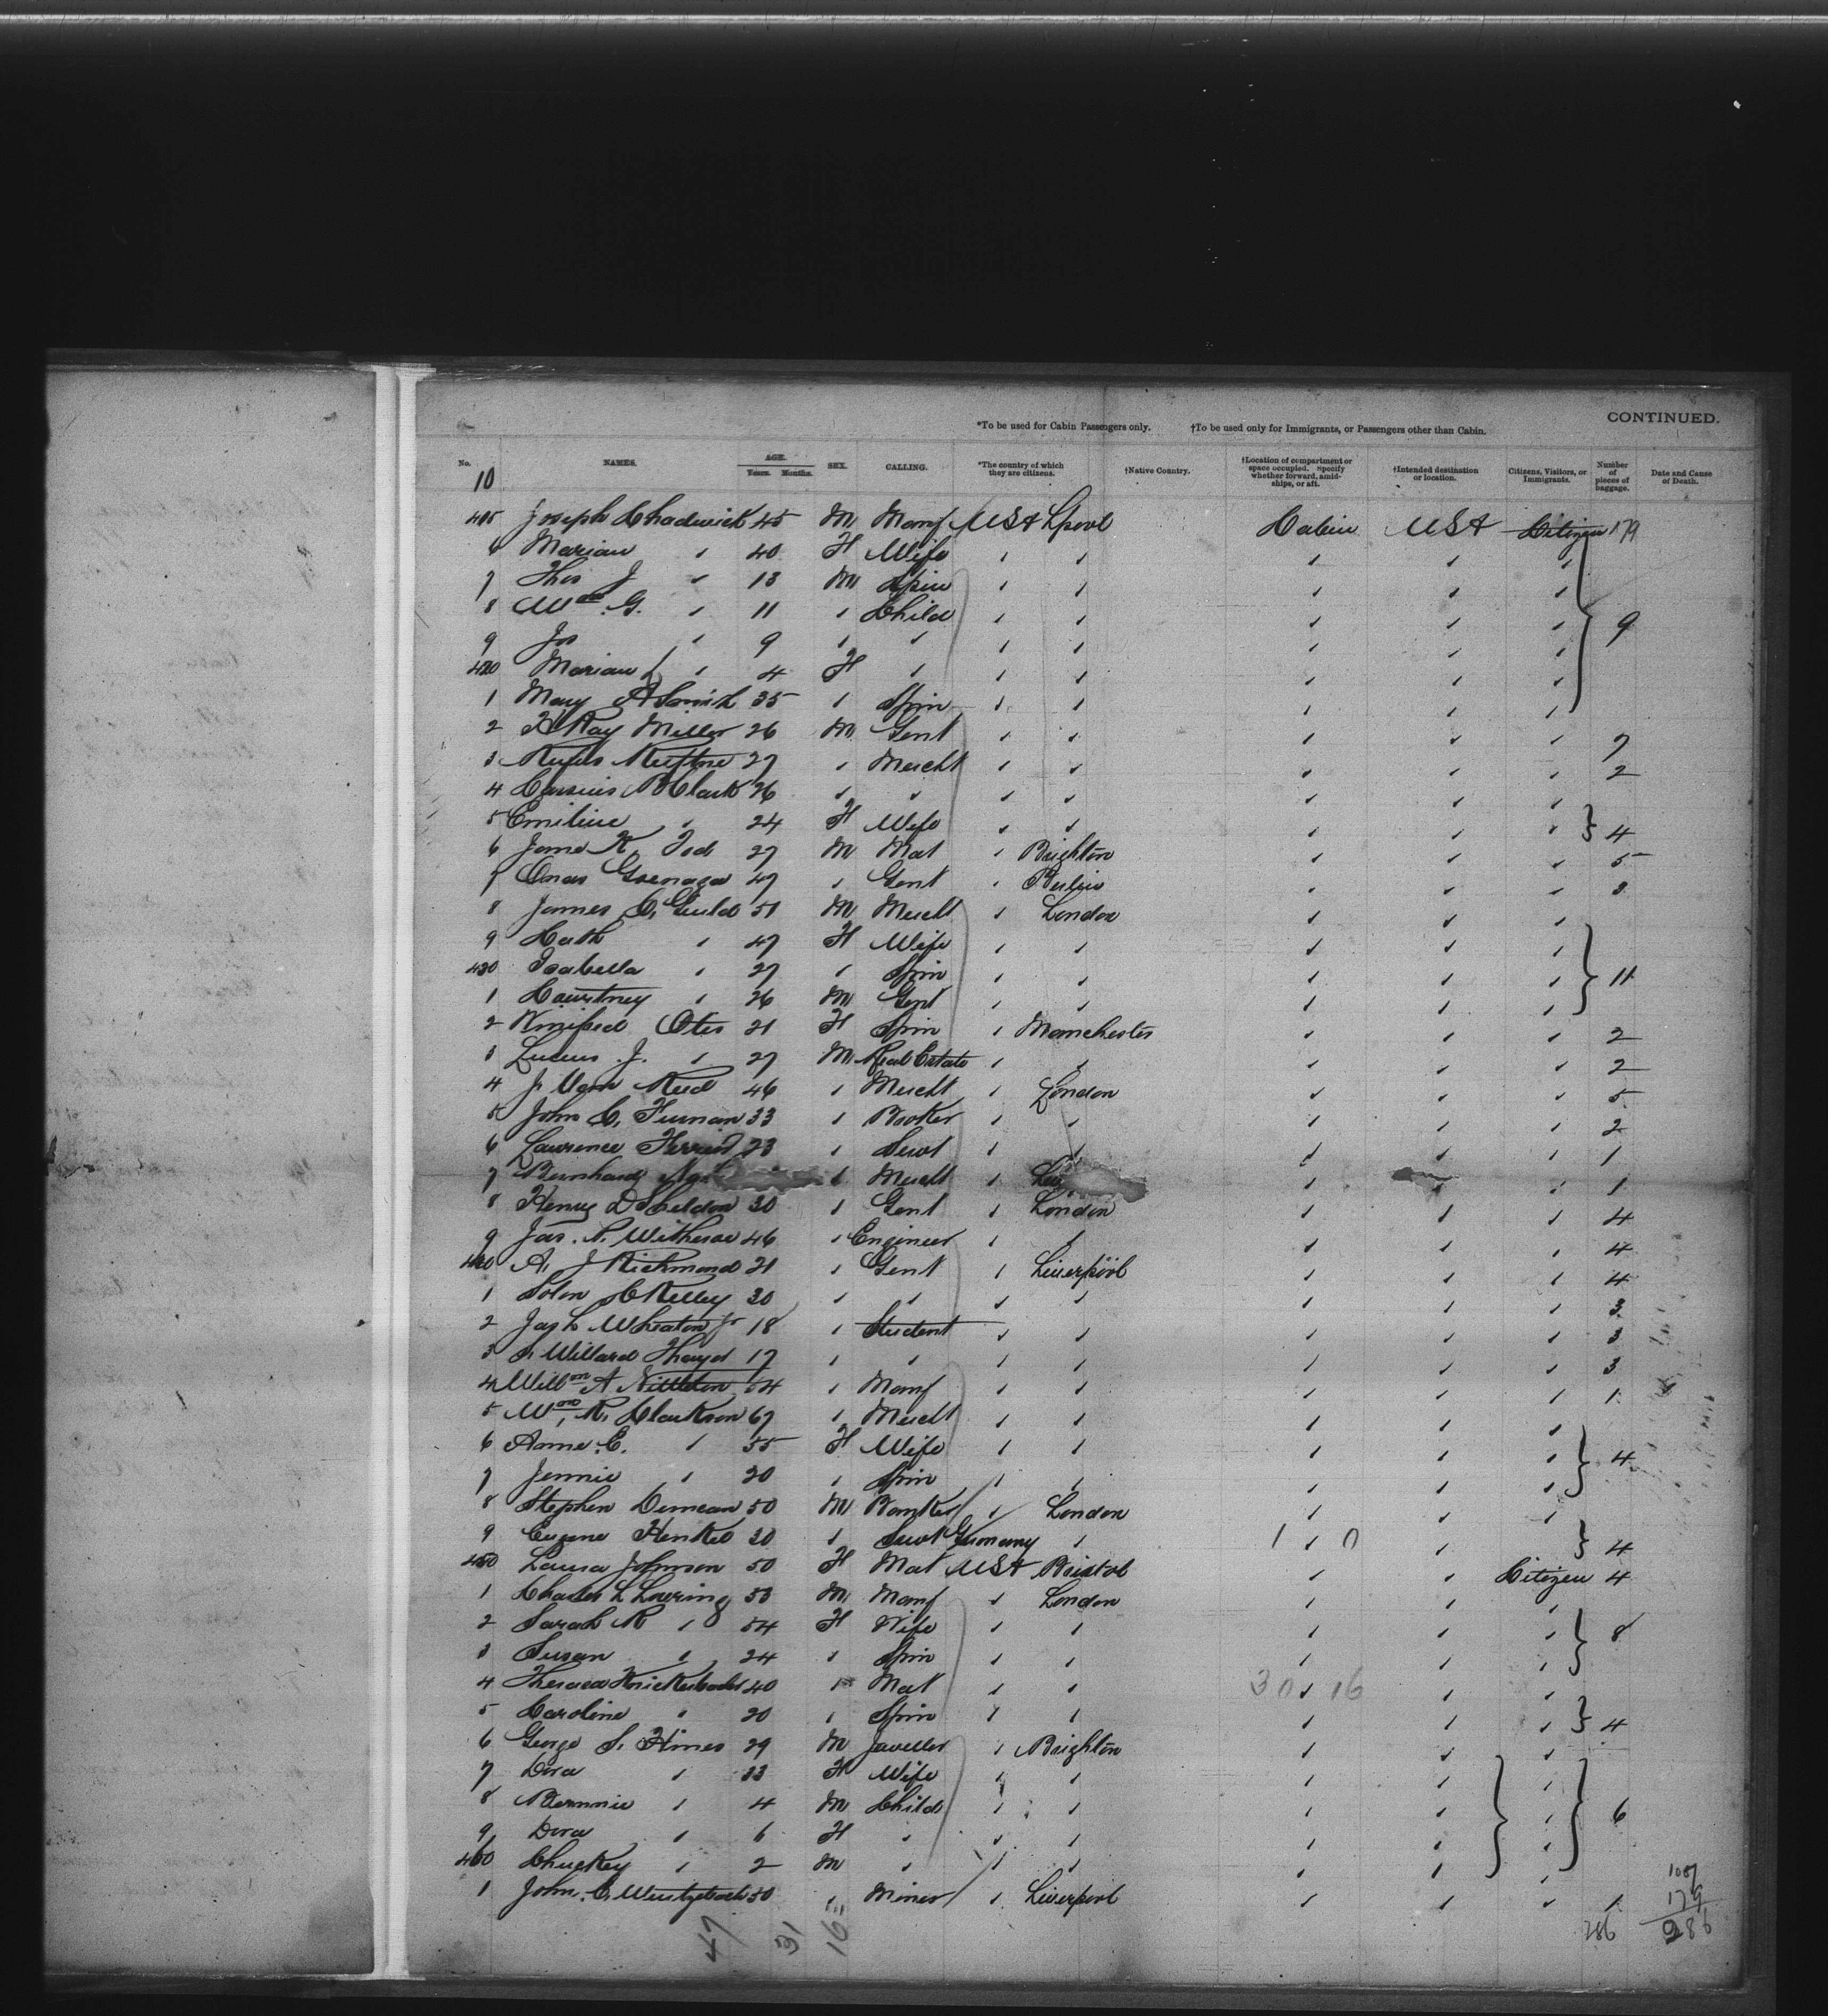 CONTINUED.
*To be used for Cabin Passengers only. †To be used only for Immigrants, or Passengers other than Cabin.
No. NAMES. AGE. Years. Months. SEX. CALLING. *The country of which they are citizens. †Native Country. †Location of compartment or space occupied. Specify whether forward, amidships, or aft. †Intended destination or location. Citizens, Visitors, or Immigrants. Number of pieces of baggage. Date and Cause of Death.
10
415 Joseph Chadwick 45 M Manf USA Lpool Cabin USA Citizen 179
6 Marian " 40 F Wife " " " " "
7 Thos J " 13 M Spin " " " " "
8 Wm. G. " 11 " Child " " " " "
9 Jos " 9 " " " " " " " 9
420 Marian L " 4 F " " " " " "
1 Mary A Smith 35 " Spin " " " " "
2 H Ray Miller 26 M Gent " " " " " 7
3 Rufus 27 " Mercht " " " " " 2
4 Cassius B Clark 26 " " " " " " "
5 Emiline " 24 F Wife " " " " " 4
6 Jame K. Tod 27 M Mat " Brighton " " " 5
7 47 " Gent " Berlin " " " 3
8 James C. Guild 51 M Mercht " London " " "
9 Cath " 47 F Wife " " " " "
430 Isabella " 27 " Spin " " " " " 11
1 Courtney " 26 M Gent " " " " "
2 Otis 21 F Spin " Manchester " " " 2
3 Lucius J. " 27 M Real Estate " " " " " 2
4 J. Reid 46 " Mercht " London " " " 5
5 John C. 33 " " " " " " 2
6 Lawrence 23 " Servt " " " " " 1
7 Bernhard " Mercht " " " " 1
8 Henry D Sheldon 30 " Gent " London " " " 4
9 Jas. 46 " Engineer " " " " " 4
440 A. J Richmond 21 " Gent " Liverpool " " " 4
1 Solon C Kelley 30 " " " " " " " 3
2 Jas L Wheaton Jr 18 " Student " " " " " 3
3 Willard 17 " " " " " " " 3
4 A Nittleton 54 " Manf " " " " " 1
5 Wm. R. Clarkson 67 " Mercht " " " " "
6 Anne. C. " 55 F Wife " " " " " 4
7 Jennie " 20 " Spin " " " " "
8 Stephen Duncan 50 M Banker " London " " "
9 Eugene Henkel 30 " Servt Germany " 1 " 0 " 4
450 Laura Johnson 50 F Mat USA Bristol " " Citizen 4
1 Charles L Lovering 53 M Manf " London " " "
2 Sarah R " 54 F Wife " " " " " 8
3 Susan " 24 " Spin " " " " "
4 Theresa Knickerbocker 40 " Mat " " 30 " 16 " "
5 Caroline " 20 " Spin " " " " " 4
6 George S. Himes 29 M Juweller " Brighton " " "
7 Dora " 33 F Wife " " " " "
8 Bennnie " 4 M Child " " " " " 6
9 Dora " 6 F " " " " " "
460 Chuckey " 2 M " " " " " "
1 John C. 50 " Miner " Liverpool " " " 1
107
179
286 286
47 31 16